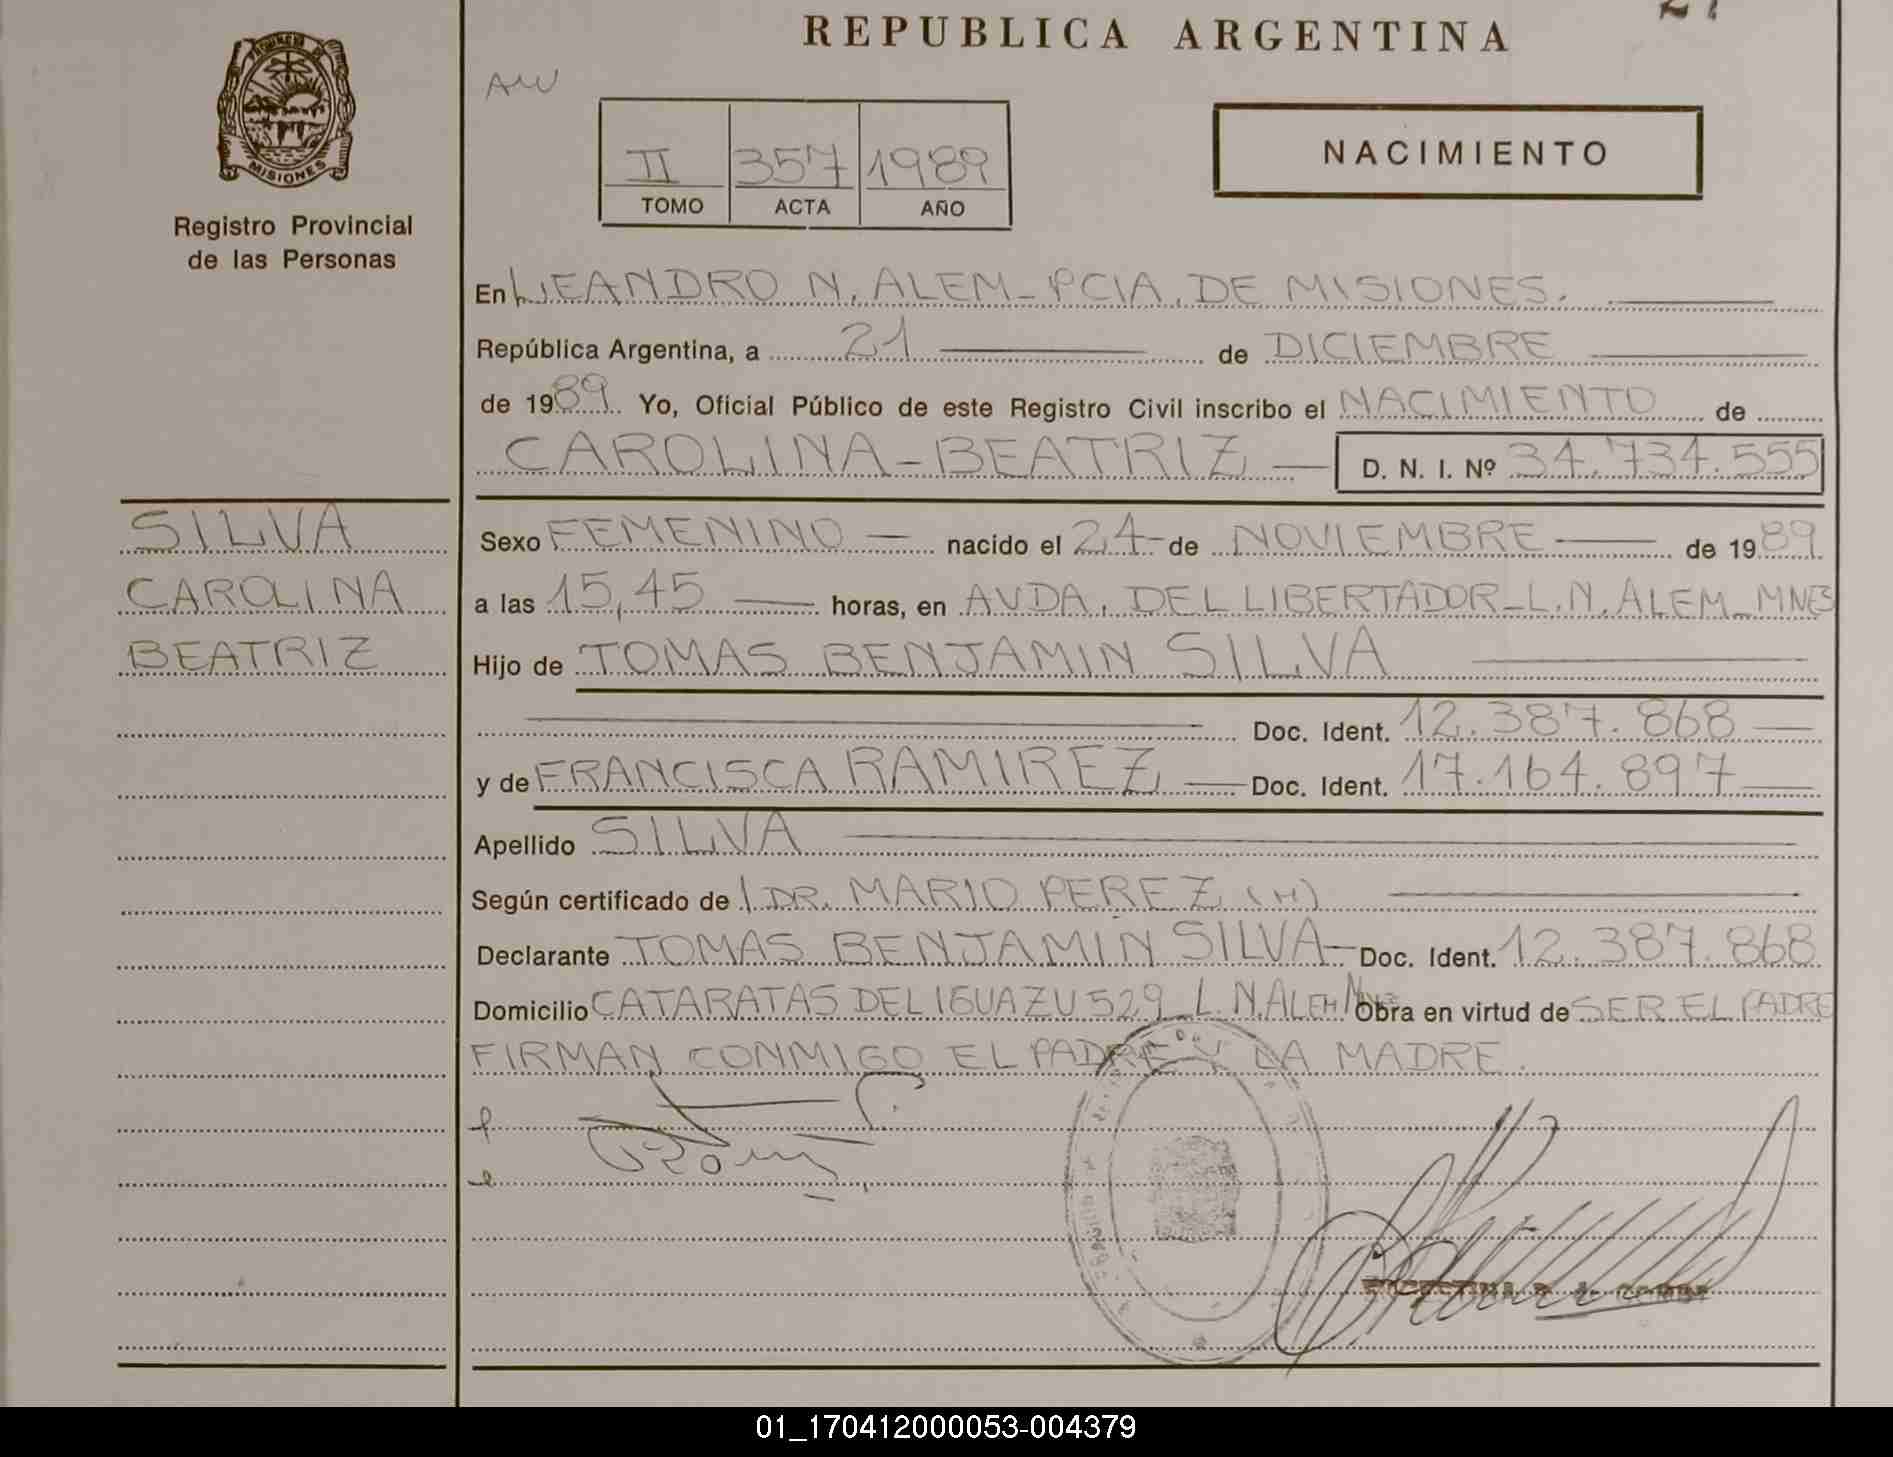 REPUBLICA ARGENTINA
MISIONES
Registro Provincial
de las Personas
II 357 1989
TOMO ACTA AÑO
NACIMIENTO
En LEANDRO N. ALEM - PCIA. DE MISIONES.
República Argentina, a 21 de DICIEMBRE
de 1989. Yo, Oficial Público de este Registro Civil inscribo el NACIMIENTO de
CAROLINA - BEATRIZ D. N. I. Nº 34.734.555
SILVA
CAROLINA
BEATRIZ
Sexo FEMENINO nacido el 24 de NOVIEMBRE de 1989
a las 15,45 horas, en AVDA. DEL LIBERTADOR - L.N. ALEM - MNES
Hijo de TOMAS BENJAMIN SILVA
Doc. Ident. 12.387.868
y de FRANCISCA RAMIREZ Doc. Ident. 17.164.897
Apellido SILVA
Según certificado de DR. MARIO PEREZ (H)
Declarante TOMAS BENJAMIN SILVA Doc. Ident. 12.387.868
Domicilio CATARATAS DEL IGUAZU 529 L.N. ALEM Mnes Obra en virtud de SER EL PADRE
FIRMAN CONMIGO EL PADRE Y LA MADRE.
01_170412000053-004379